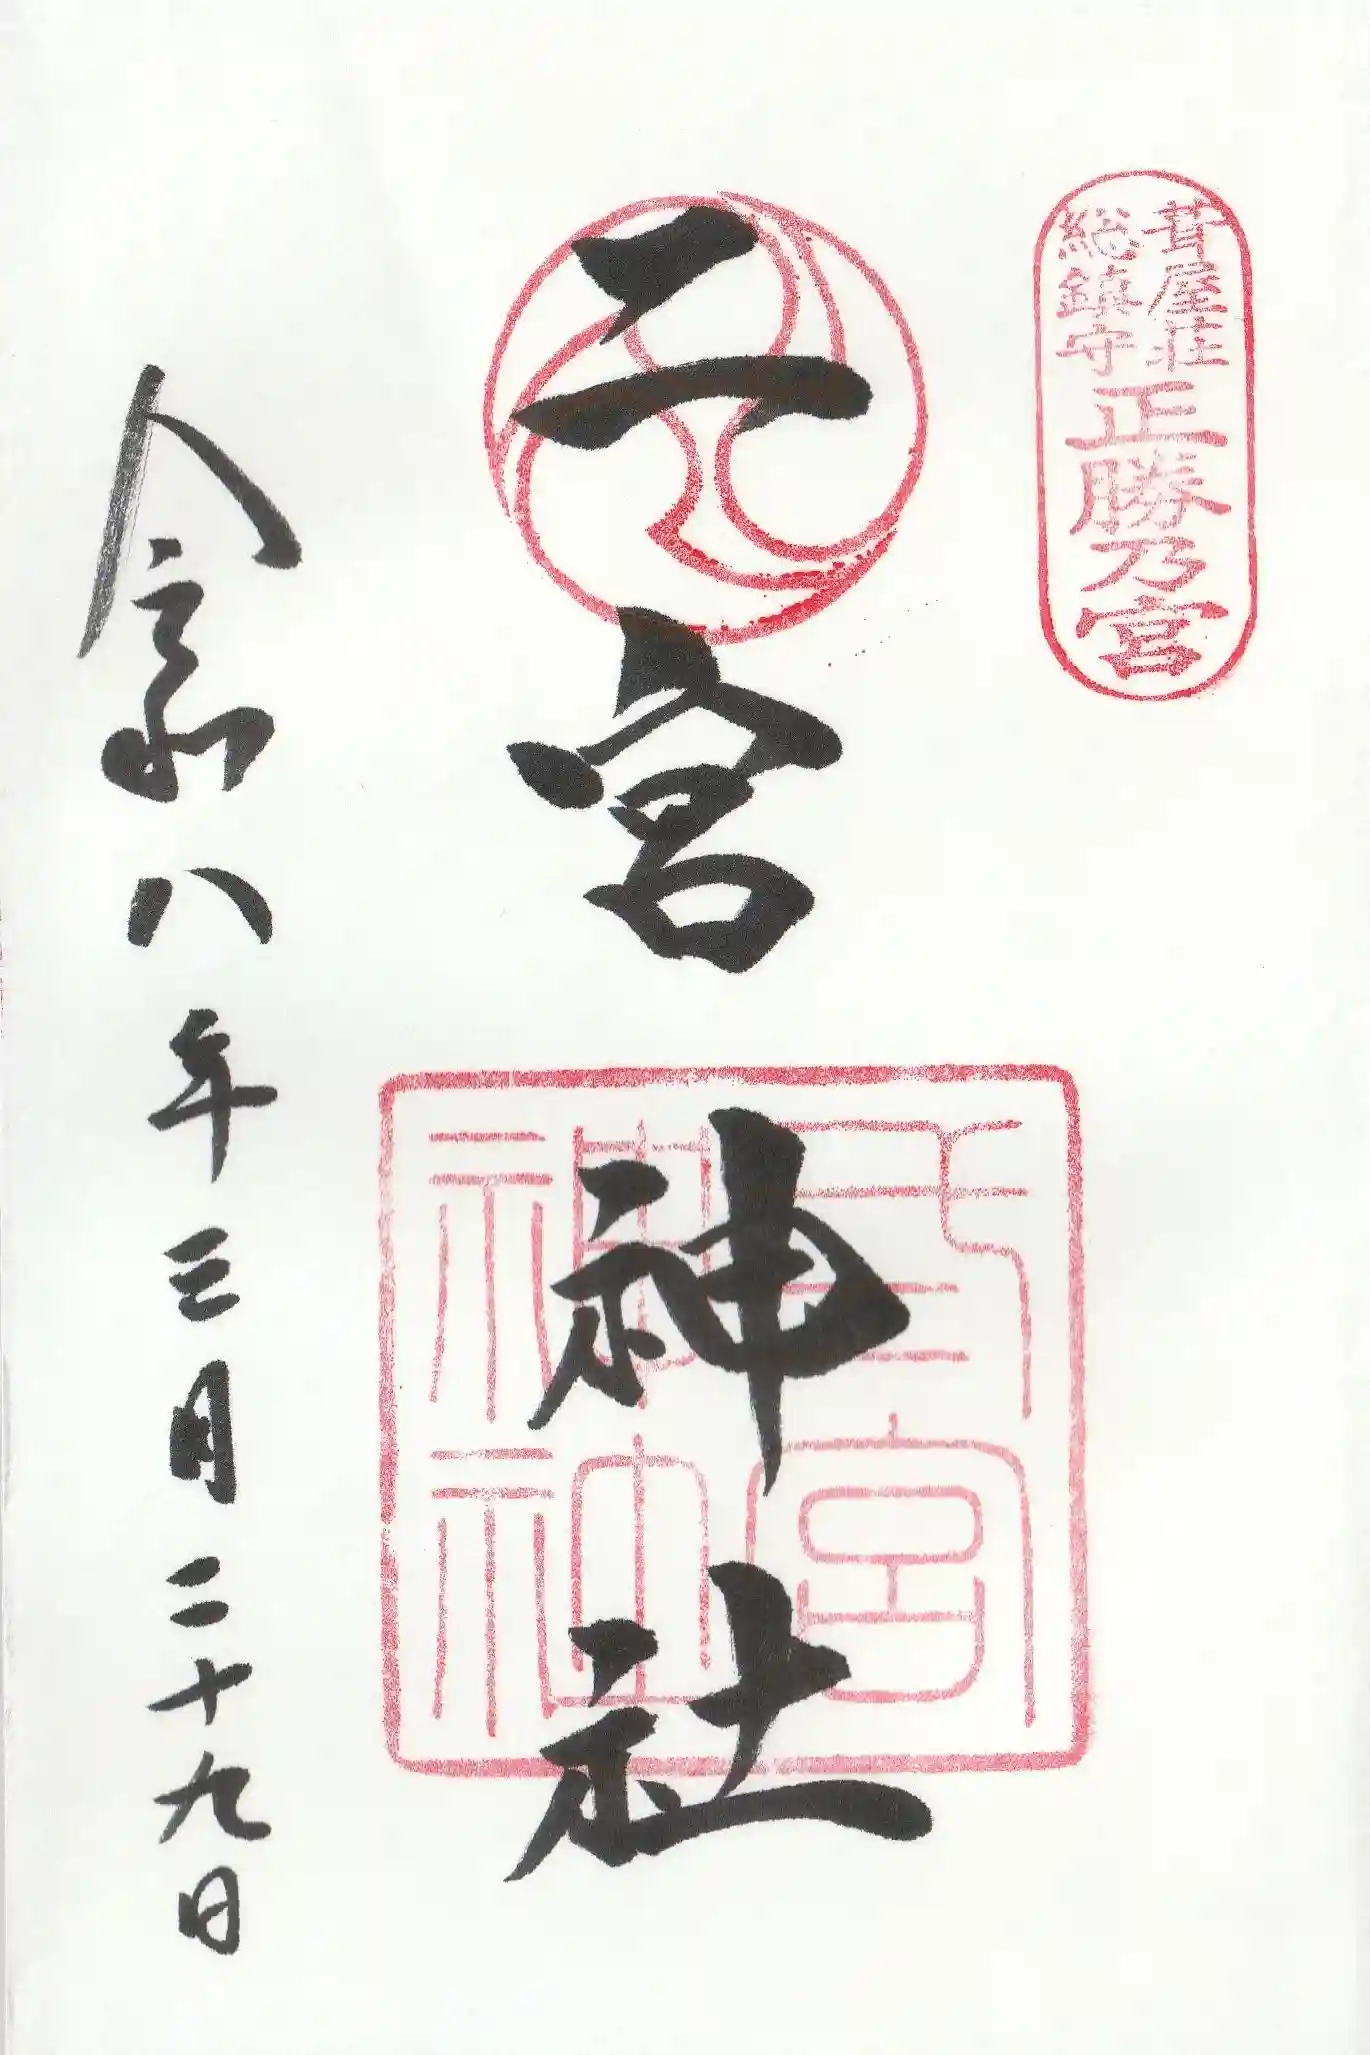 葺屋荘
総鎮守
正勝乃宮
二宮神社
令和八年三月二十九日